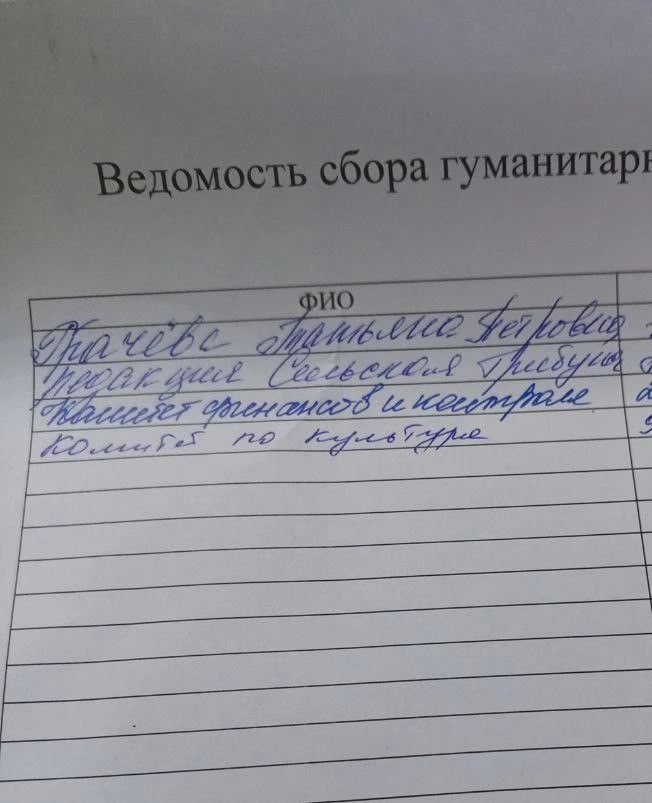 Ведомость сбора гуманитарн
ФИО
Ткачёва Татьяна Петровна
редакция Сельская Трибуна
Комитет финансов и контроля
Комитет по культуре